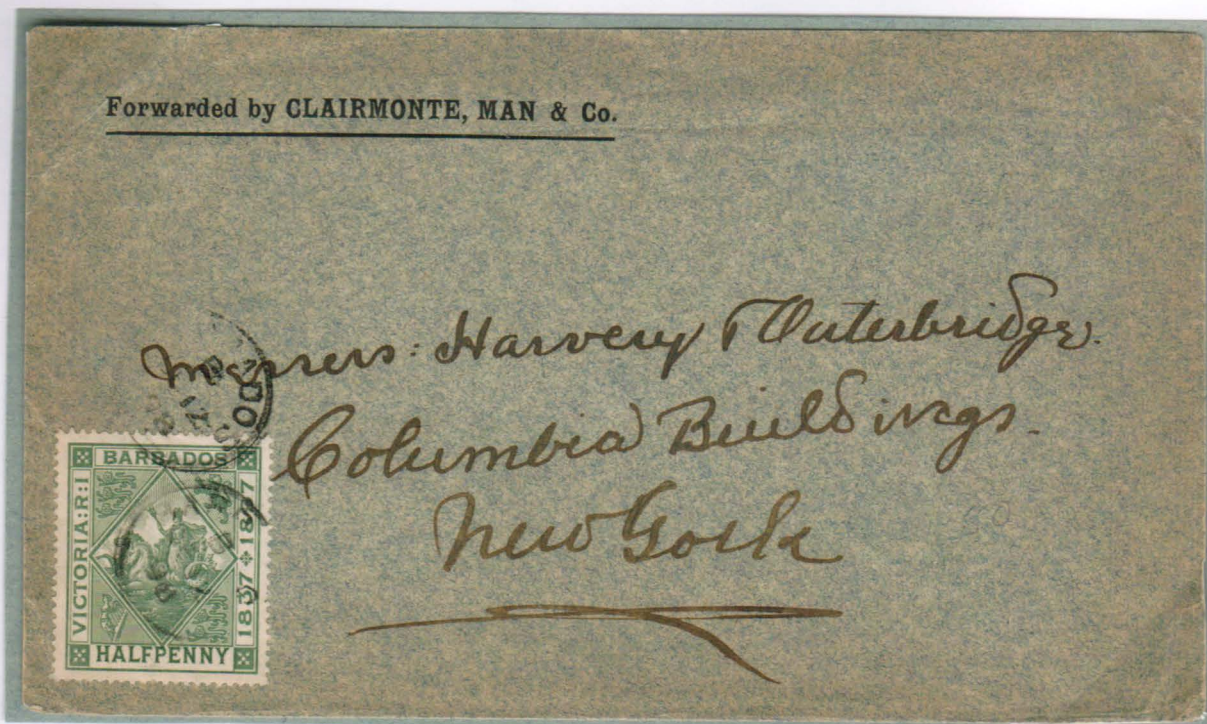 Forwarded by CLAIRMONTE, MAN & Co.
Messers: Harvery & Outerbridge.
Columbia Buildings.
New York
BARBADOS
VICTORIA:R:I
1837 1897
HALFPENNY